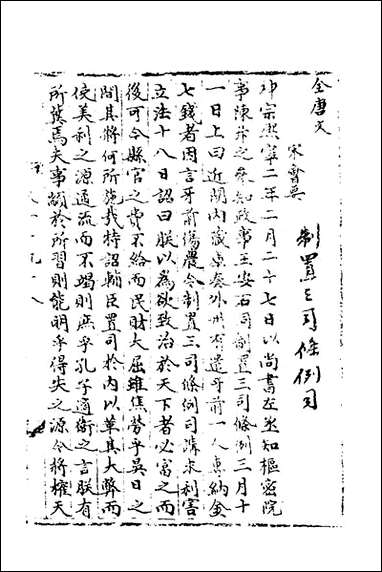 全唐文
宋會要
制置三司條例司
神宗熙寧二年二月二十七日以尚書左丞知樞密院
事陳升之參知政事王安石制置三司條例三月十
一日上曰近閱內藏庫奏外州有遣牙前一人專納金
七錢者因言牙前傷農令制置三司條例司講求利害
立法十八日詔曰朕以為欲致治於天下者必富之而
後可今縣官之費不給而民財大屈雖焦勞乎昃日之
間其將何所施哉特詔輔臣置司於內以革其大弊而
使美利之源通流而不竭則庶乎孔子適衛之言朕有
所冀焉夫事顓於所習則能明乎得失之源今將權天